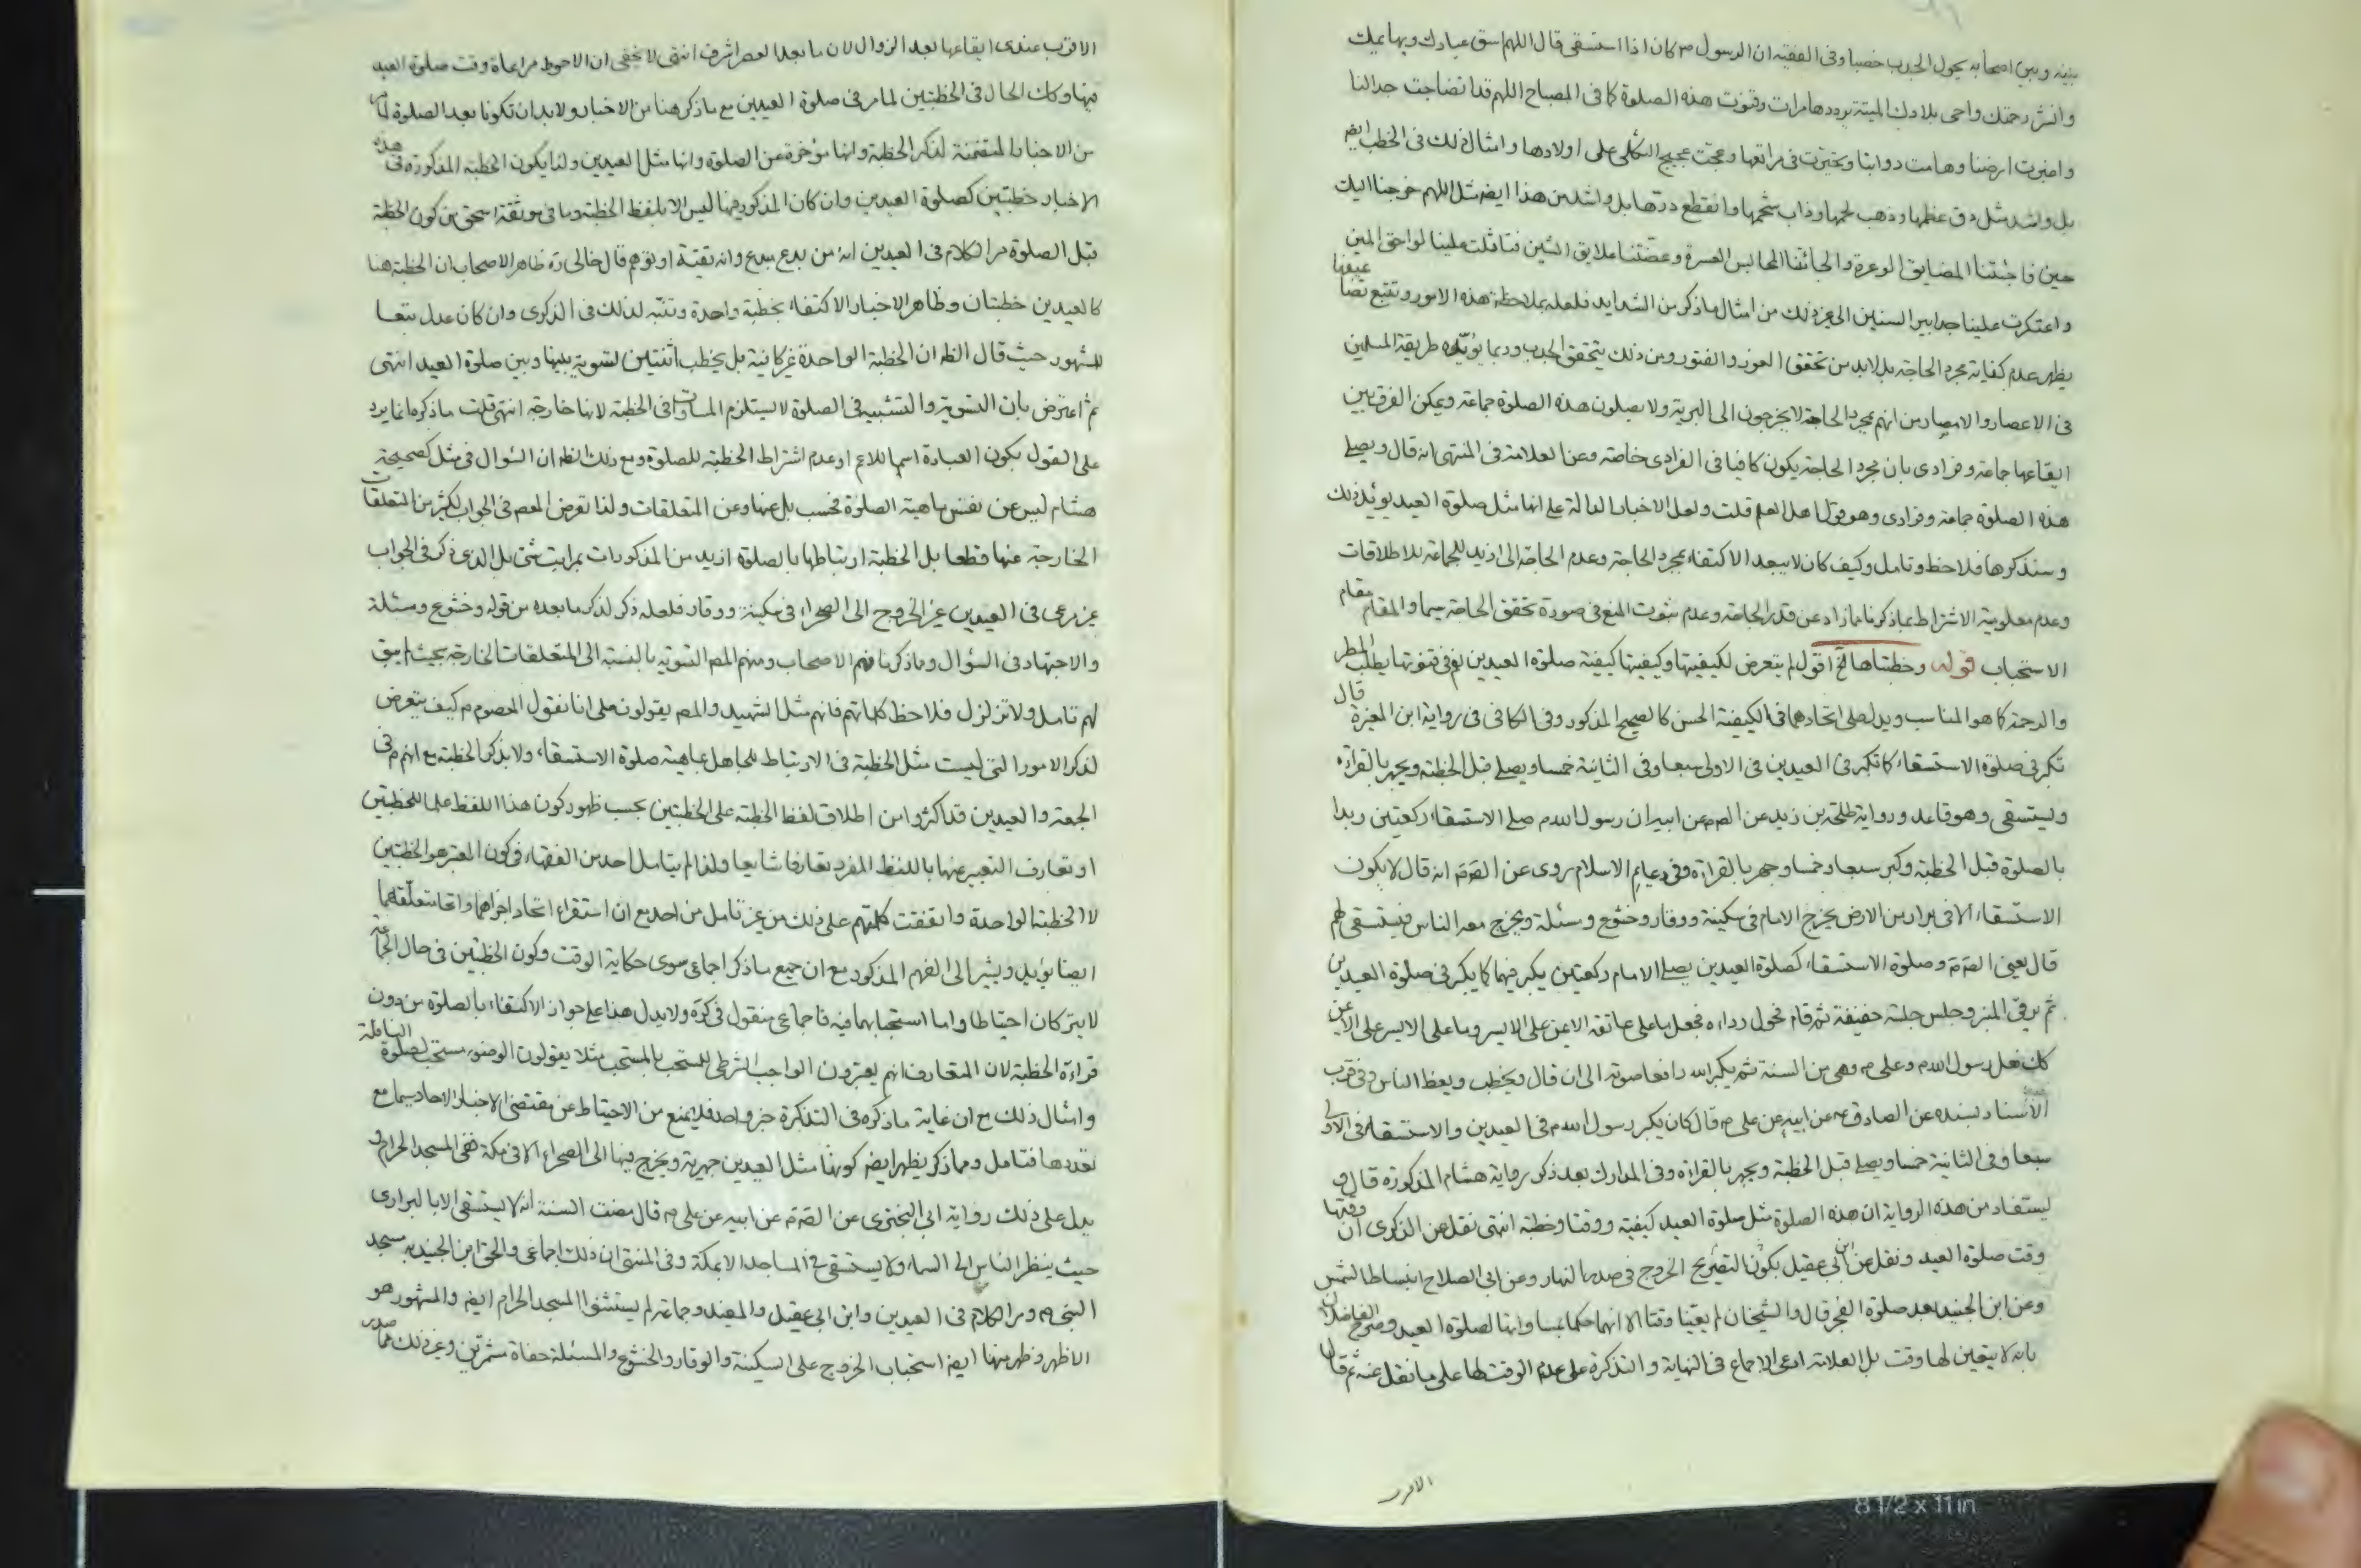 بينه وبين اصحابه يحول الجدب خصبا وفى الفقيه ان الرسول ص كان اذا استسقى قال اللهم اسق عبادك وبهائمك
وانشر رحمتك واحى بلادك الميتة يرددها مرات وقنوت هذه الصلوة كما فى المصباح اللهم قد انضاجت جبالنا
واغبرت ارضنا وهامت دوابنا وتحيرت فى مراتعها وعجت عجيج الثكلى على اولادها وامثال ذلك فى الخطب ايضا
بل واشد مثل دق عظمها وذهب لحمها وذاب شحمها وانقطع درتها بل واشد من هذا ايضا مثل اللهم خرجنا اليك
حين فاجئتنا المضايق الوعرة والجائتنا المحابس العسرة وعضتنا علايق الشين فتاثلت علينا لواحق المين
واعتكرت علينا حدابير السنين الى غير ذلك من امثال ما ذكر من الشدايد فلعله بملاحظة هذه الامور وتتبع تضاعيفها
يظهر عدم كفاية مجرد الحاجة بل لابد من تحقق العوز والفتور ومن ذلك يتحقق الجدب وربما يؤيده طريقة المسلمين
فى الاعصار والامصار من انهم بمجرد الحاجة لا يخرجون الى البرية ولا يصلون هذه الصلوة جماعة ويمكن الفرق بين
ايقاعها جماعة وفرادى بان مجرد الحاجة يكون كافيا فى الفرادى خاصة وعن العلامة فى المنتهى انه قال ويصلى
هذه الصلوة جماعة وفرادى وهو قول اهل العلم قلت ولعل الاخبار الدالة على انها مثل صلوة العيد يؤيد ذلك
وسنذكرها فلاحظ وتامل وكيف كان لا يبعد الاكتفاء بمجرد الحاجة وعدم الحاجة الى ازيد للجماعة للاطلاقات
وعدم معلومية الاشتراط بما ذكرنا مما زاد عن قدر الحاجة وعدم ثبوت المنع فى صورة تحقق الحاجة سيما والمقام مقام
الاستحباب قوله وخطبتاها الخ اقول لم يتعرض لكيفيتها وكيفيتها كيفية صلوة العيدين نعم فى قنوتها يطلب المطر
والرحمة كما هو المناسب ويدل على اتحادهما فى الكيفية الحسن كالصحيح المذكور وفى الكافى فى رواية ابن المغيرة قال
تكبر فى صلوة الاستسقاء كما تكبر فى العيدين فى الاولى سبعا وفى الثانية خمسا ويصلى قبل الخطبة ويجهر بالقراءة
ويستسقى وهو قاعد ورواية طلحة بن زيد عن الصم عن ابيه ان رسول الله ص صلى الاستسقاء ركعتين وبدا
بالصلوة قبل الخطبة وكبر سبعا وخمسا وجهر بالقراءة وفى دعايم الاسلام روى عن الصم انه قال لا يكون
الاستسقاء الا فى براز من الارض يخرج الامام فى سكينة ووقار وخشوع ومسئلة ويخرج معه الناس فيستسقى لهم
قال يعنى الصم وصلوة الاستسقاء كصلوة العيدين يصلى الامام ركعتين يكبر فيهما كما يكبر فى صلوة العيدين
ثم يرقى المنبر وجلس جلسة خفيفة ثم قام فحول رداءه فجعل ما على عاتقه الايمن على الايسر وما على الايسر على الايمن
كك فعل رسول الله ص وعلى م وهى من السنة ثم يكبر الله رافعا صوته الى ان قال ويخطب ويعظ الناس وفى قرب
الاسناد بسنده عن الصادق ع عن ابيه عن على م قال كان يكبر رسول الله ص فى العيدين والاستسقاء فى الاولى
سبعا وفى الثانية خمسا ويصلى قبل الخطبة ويجهر بالقراءة وفى المدارك بعد ذكر رواية هشام المذكورة قال و
يستفاد من هذه الرواية ان هذه الصلوة مثل صلوة العيد كيفية ووقتا وخطبة انتهى نقل عن الذكرى ان وقتها
وقت صلوة العيد ونقل عن ابن ابى عقيل يكون التصريح الخروج فى صدر النهار وعن ابى الصلاح انبساط الشمس
وعن ابن الجنيد بعد صلوة الفجر قال والشيخان لم يعينا وقتا الا انهما حكما بمساواتها لصلوة العيد وصرح الفاضلان
بانه لا يتعين لها وقت بل العلامة ادعى الاجماع فى النهاية والتذكرة على عدم الوقت لها على ما نقل عنه ثم قال
الاقرب
الاقرب عندى ايقاعها بعد الزوال لان ما بعد العصر اشرف انتهى لا يخفى ان الاحوط مراعاة وقت صلوة العيد
فيها وكك الحال فى الخطبتين لما مر فى صلوة العيدين مع ما ذكر هنا من الاخبار ولابد ان تكونا بعد الصلوة لما مر
من الاخبار المتضمنة لذكر الخطبة وانها مؤخرة عن الصلوة وانها مثل العيدين ولذا يكون الخطبة المذكورة فى هذه
الاخبار خطبتين كصلوة العيدين وان كان المذكور فيها ليس الا بلفظ الخطبة وما فى موثقة اسحق من كون الخطبة
قبل الصلوة مر الكلام فى العيدين انه من بدع مبدع وانه تقية او توهم قال خالى ره ظاهر الاصحاب ان الخطبة هنا
كالعيدين خطبتان وظاهر الاخبار الاكتفاء بخطبة واحدة وتنبه لذلك فى الذكرى وان كان عدل تبعا
للمشهور حيث قال الظ ان الخطبة الواحدة غير كافية بل يخطب اثنتين لتسوية بينها وبين صلوة العيد انتهى
ثم اعترض بان التسوية والتشبيه فى الصلوة لا يستلزم المساوات فى الخطبة لانها خارجة انتهى قلت ما ذكره انما يرد
على القول بكون العبادة اسما للاعم او عدم اشتراط الخطبة للصلوة ومع ذلك الظ ان السؤال فى مثل كصحيحة
هشام ليس عن نفس ماهية الصلوة فحسب بل عنها وعن المتعلقات ولذا تعرض المعصوم فى الجواب لكثير من المتعلقات
الخارجة عنها قطعا بل الخطبة ارتباطها بالصلوة ازيد من المذكورات بمراتب شتى بل الذى ذكر فى الجواب
غير مرعى فى العيدين غير الخروج الى الصحراء فى سكينة ووقار فلعله ذكر لذكر ما بعده من قوله وخشوع ومسئلة
والاجتهاد فى السؤال وما ذكرنا فهم الاصحاب ومنهم المصنف التسوية بالنسبة الى المتعلقات الخارجة بحيث لم يبق
لهم تامل ولا تزلزل فلاحظ كلماتهم فانهم مثل الشهيد والمصنف يقولون على انا نقول المعصوم م كيف يتعرض
لذكر الامور التى ليست مثل الخطبة فى الارتباط للجاهل بماهية صلوة الاستسقاء ولا يذكر الخطبة مع انهم م فى
الجمعة والعيدين قد اكثروا من اطلاق لفظ الخطبة على الخطبتين بحسب ظهور كون هذا اللفظ علما للخطبتين
او تعارف التعبير عنها باللفظ المفرد تعارفا شايعا ولذا لم يتامل احد من الفقهاء فى كون المعتبر هو الخطبتين
لا الخطبة الواحدة واتفقت كلمتهم على ذلك من غير تامل من احد مع ان استقراء اتحاد اجزائهما واتحاد متعلقهما
ايضا يؤيد ويشير الى الفهم المذكور مع ان جميع ما ذكر اجماعى سوى حكاية الوقت وكون الخطبتين فى حال الجماعة
لا يترك احتياطا واما استحبابهما فيه فاجماعى منقول فى كره ولا يدل هذا على جواز الاكتفاء بالصلوة من دون
قراءة الخطبة لان المتعارف انهم يعبرون الواجب الشرطى للمستحب بالمستحب مثلا يقولون الوضوء مستحب لصلوة النافلة
وامثال ذلك مع ان غاية ما ذكره فى التذكرة خبر واحد فلا يمنع من الاحتياط عن مقتضى الاخبار الاحاد سيما مع
تعددها فتامل ومما ذكر يظهر ايضا كونها مثل العيدين جهرية ويخرج فيها الى الصحراء الا فى مكة ففى المسجد الحرام و
يدل على ذلك رواية ابى البخترى عن الصم عن ابيه عن على م قال مضت السنة انه لا يستسقى الا بالبرارى
حيث ينظر الناس الى السماء ولا يستسقى فى المساجد الا بمكة وفى المنتهى ان ذلك اجماعى والحق ابن الجنيد به مسجد
النبى ص ومر الكلام فى العيدين وابن ابى عقيل والمفيد وجماعة لم يستثنوا المسجد الحرام ايضا والمشهور هو
الاظهر وظهر منها ايضا استحباب الخروج على السكينة والوقار والخشوع والمسئلة حفاة مشمرين وغير ذلك مما صدر
8 1/2 x 11 in